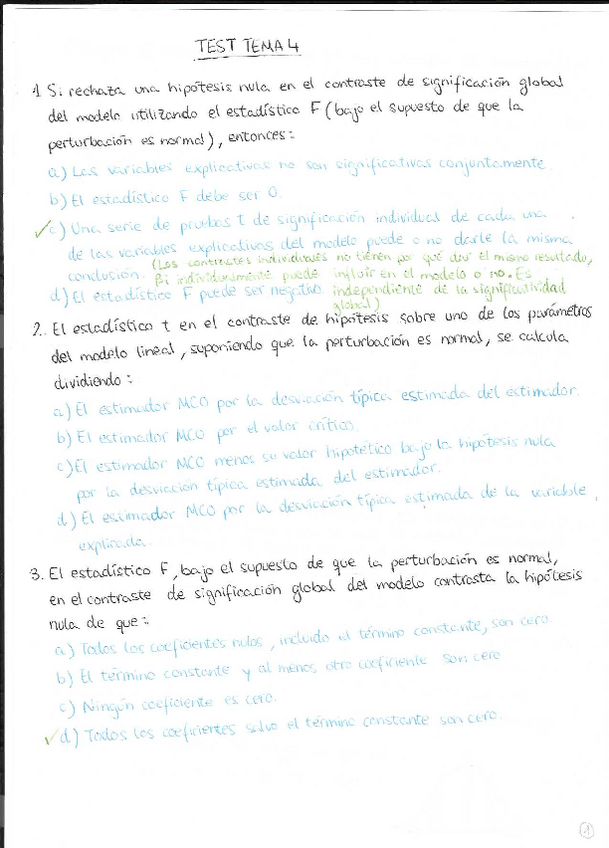 TEST TEMA 4
1 Si rechaza una hipótesis nula en el contraste de significación global
del modelo utilizando el estadístico F (bajo el supuesto de que la
perturbación es normal), entonces:
a) Las variables explicativas no son significativas conjuntamente.
b) El estadístico F debe ser 0.
✓c) Una serie de pruebas t de significación individual de cada una
de las variables explicativas del modelo puede o no darle la misma
conclusión. (Los contrastes individuales no tienen por qué dar el mismo resultado,
βi individualmente puede influir en el modelo o no. Es
d) El estadístico F puede ser negativo independiente de la significatividad
global)
2. El estadístico t en el contraste de hipótesis sobre uno de los parámetros
del modelo lineal, suponiendo que la perturbación es normal, se calcula
dividiendo:
a) El estimador MCO por la desviación típica estimada del estimador.
b) El estimador MCO por el valor crítico.
c) El estimador MCO menos su valor hipotético bajo la hipótesis nula
por la desviación típica estimada del estimador.
d) El estimador MCO por la desviación típica estimada de la variable
explicada.
3. El estadístico F, bajo el supuesto de que la perturbación es normal,
en el contraste de significación global del modelo contrasta la hipótesis
nula de que:
a) Todos los coeficientes nulos, incluido el término constante, son cero
b) El término constante y al menos otro coeficiente son cero
c) Ningún coeficiente es cero.
✓d) Todos los coeficientes salvo el término constante son cero.
1